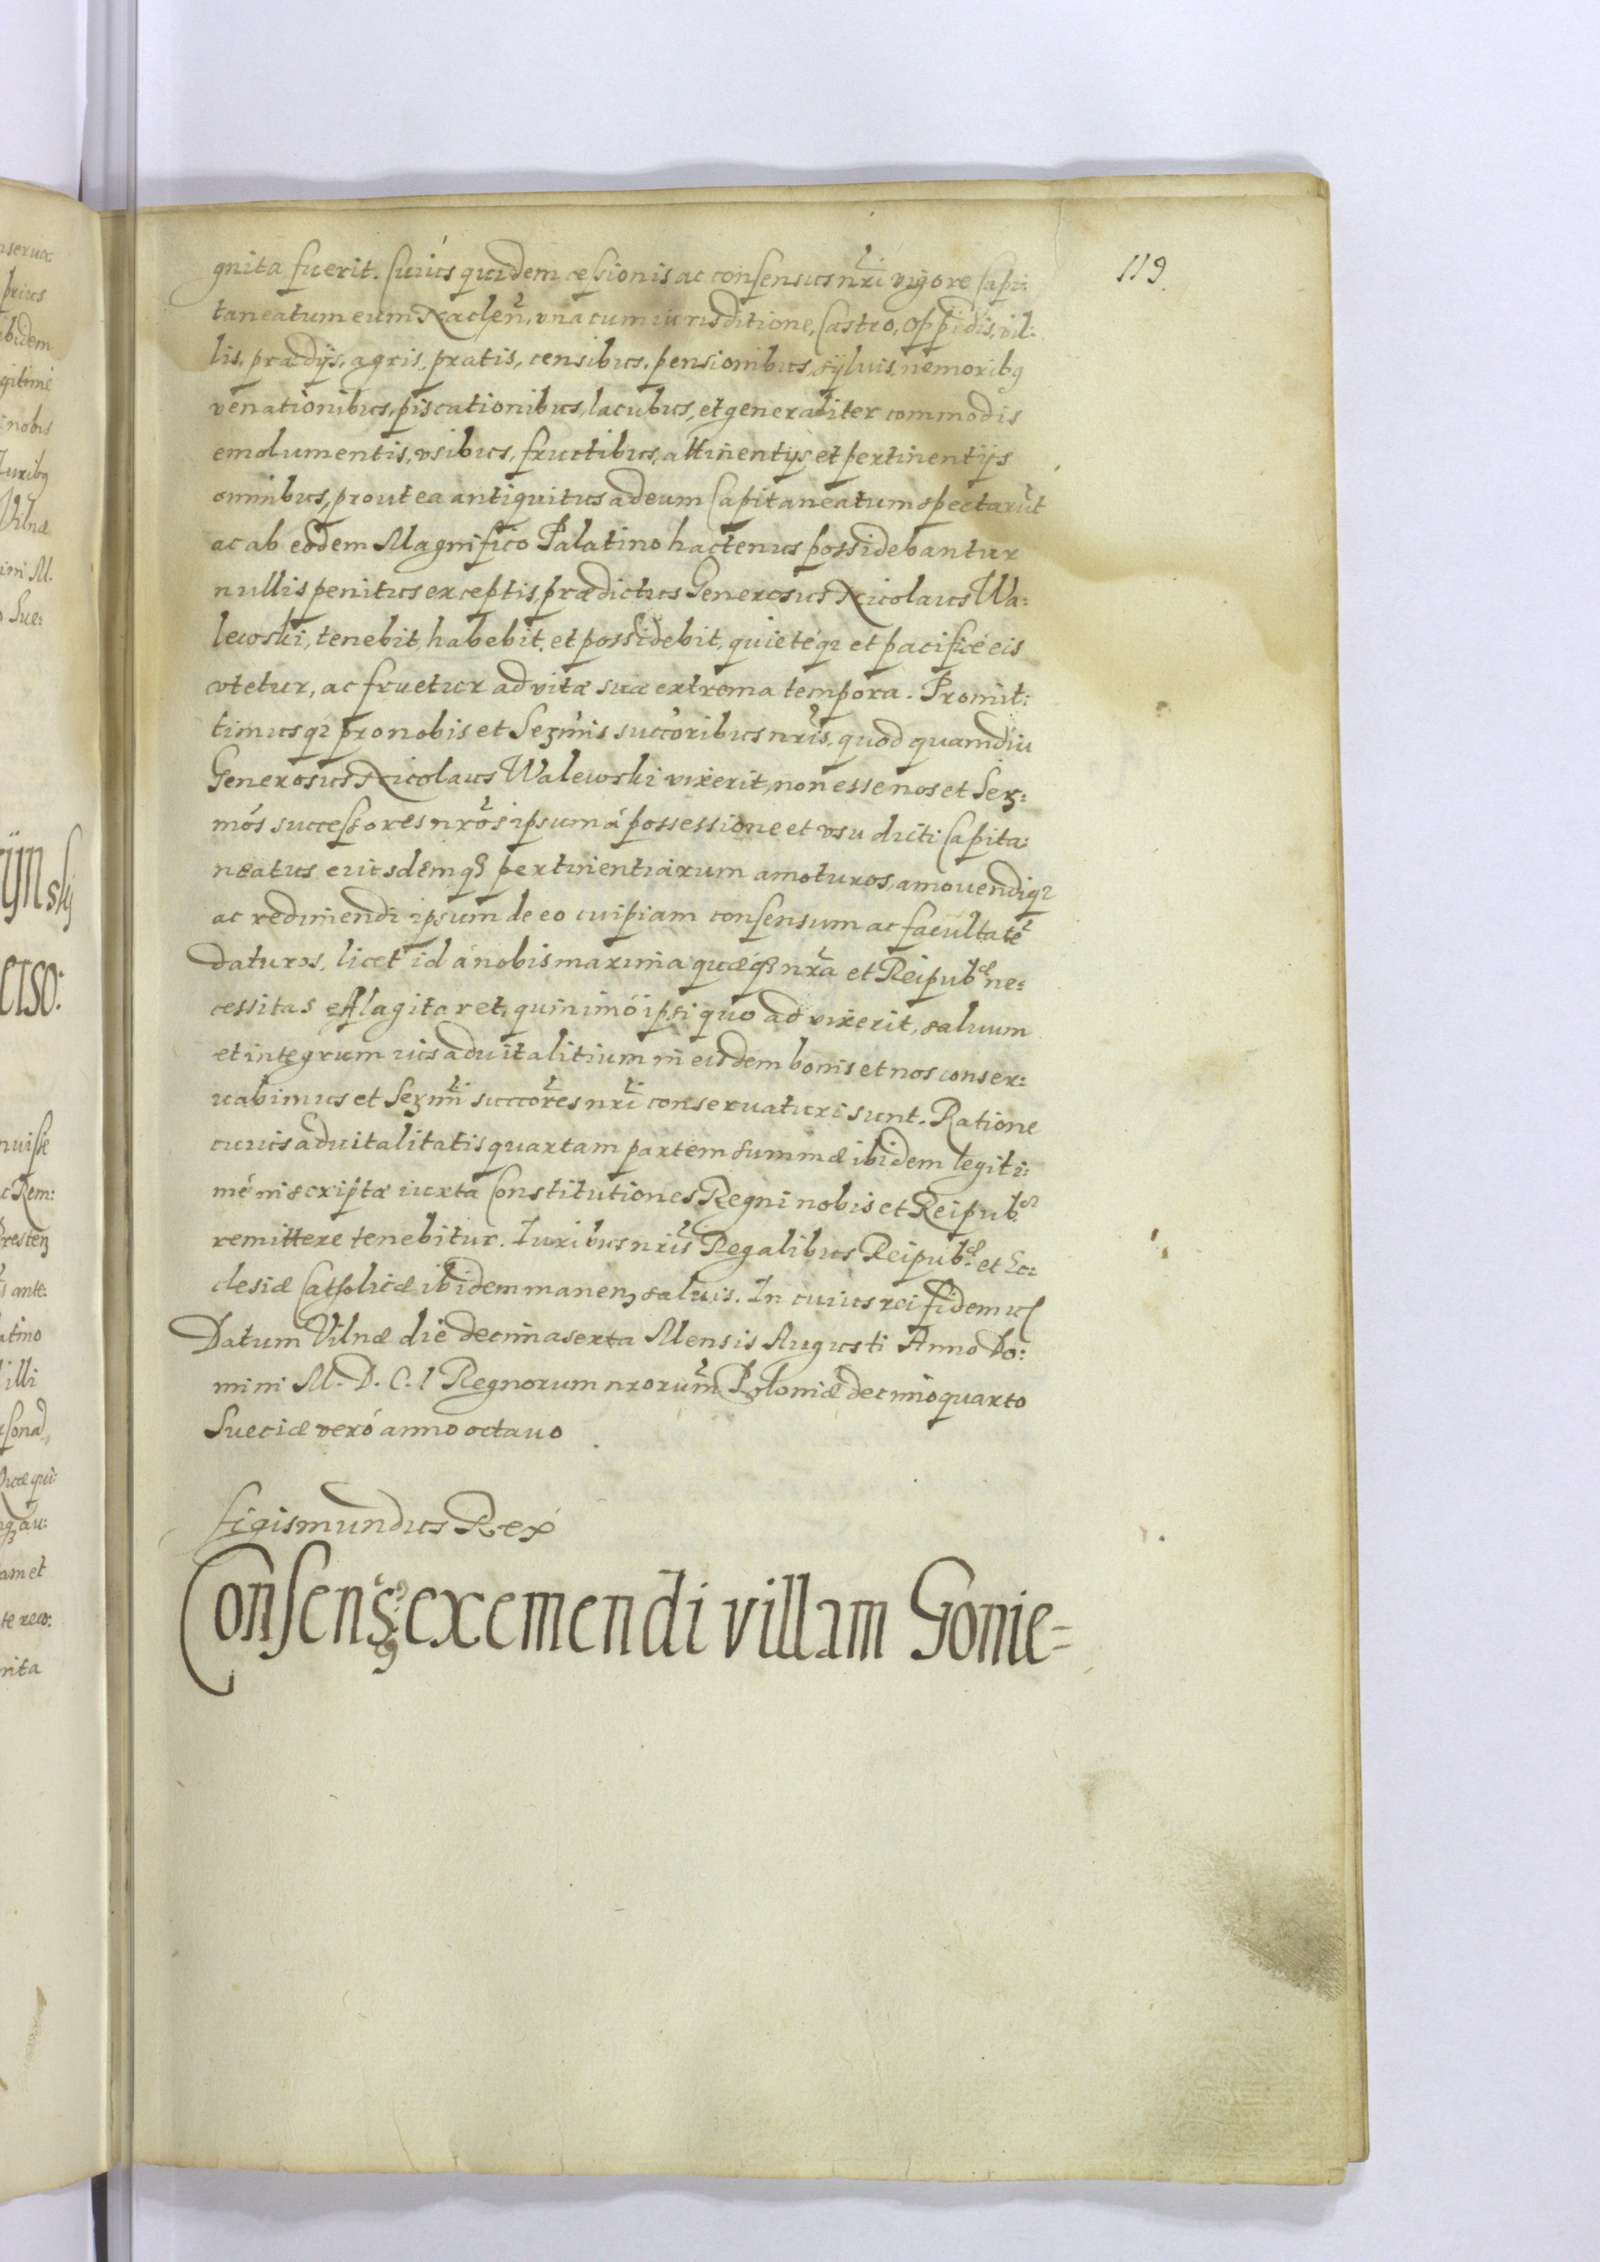 119.
gnita fuerit. Cuius quidem cessionis ac consensus nri vigore Capi:
taneatum eum Naclen, vna cum iurisditione, Castro, Oppidis, vil:
lis, prædijs, agris, pratis, censibus, pensionibus, syluis, nemoribq
venationibus, piscationibus, lacubus, et generaliter commodis
emolumentis, vsibus, fructibus, attinentijs et pertinentijs
omnibus, prout ea antiquitus ad eum Capitaneatum spectarut
ac ab eodem Magnifico Palatino hactenus possidebantur
nullis penitus exceptis prædictus Generosus Nicolaus Wa:
lewski, tenebit, habebit, et possidebit, quieteq; et pacificé eis
vtetur, ac fruetur ad vitæ suæ extrema tempora. Promit:
timusq; pro nobis et Serm̃is succoribus nris, quod quamdiu
Generosus Nicolaus Walewski vixerit, non esse nos et Ser:
mós successores nros ipsum á possessione et vsu dicti Capita:
neatus eiusdemq; pertinentiarum amoturos, amouendiq;
ac redimendi ipsum de eo cuipiam consensum ac facultate
daturos, licet id á nobis maxima quæq; nra et Reipubæ ne:
cessitas efflagitaret, quinimó ipsi quo ad vixerit, saluum
et integrum ius aduitalitium in eisdem bonis et nos conser:
uabimus et Sermi succores nri conseruaturi sunt. Ratione
cuius aduitalitatis quartam partem summæ ibidem legiti:
mé inscriptæ iuxta Constitutiones Regni nobis et Reipub.
remittere tenebitur. Iuribus nris Regalibus Reipubæ et Ec:
clesiæ Catholicæ ibidem manen, saluis. In cuius rei fidem
Datum Vilnæ die decimasexta Mensis Augusti Anno Do:
mini M. D. C. I Regnorum nrorum Poloniæ decimoquarto
Sueciæ veró anno octauo
Sigismundus Rex
Consens9 exemendi villam Gonie=